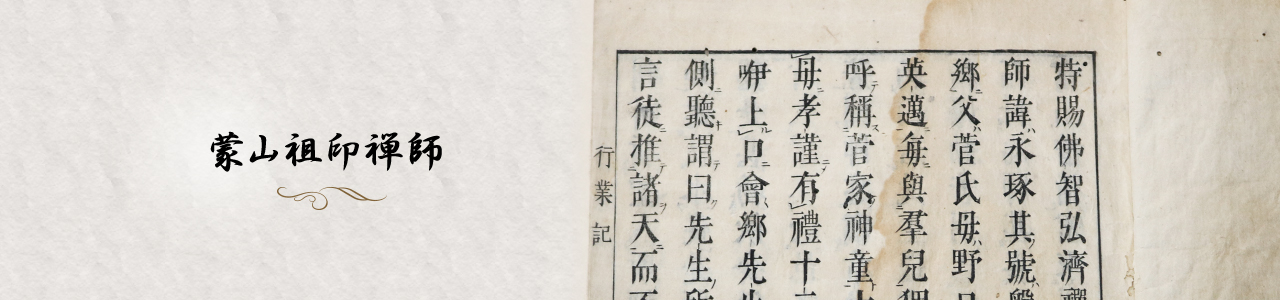 蒙山祖印禅師
特賜佛智弘濟禪
師諱永琢其號盤
鄉父菅氏母野口
英邁每與羣兒狎
呼稱菅家神童十
毋孝謹有禮十二
咿上口會鄉先生
側聽謂曰先生所
言徒推諸天而不
行業記